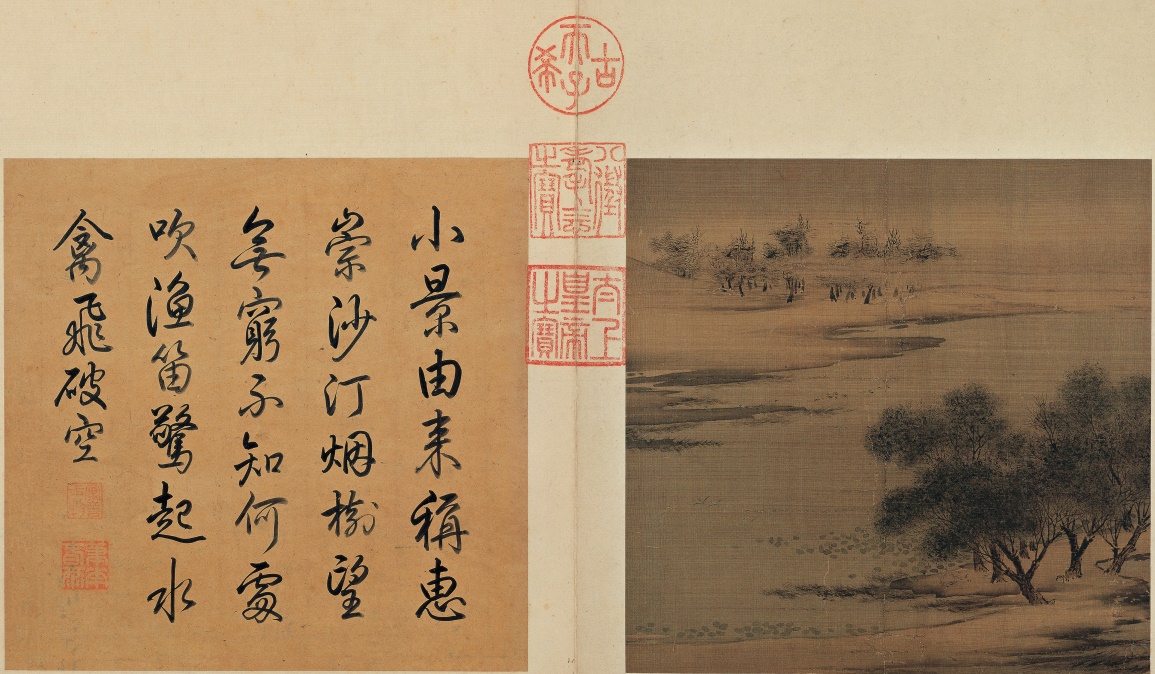 古希天子
八徵耄念之寶
太上皇帝之寶
小景由来稱惠
崇沙汀烟樹望
無窮不知何處
吹漁笛驚起水
禽飛破空